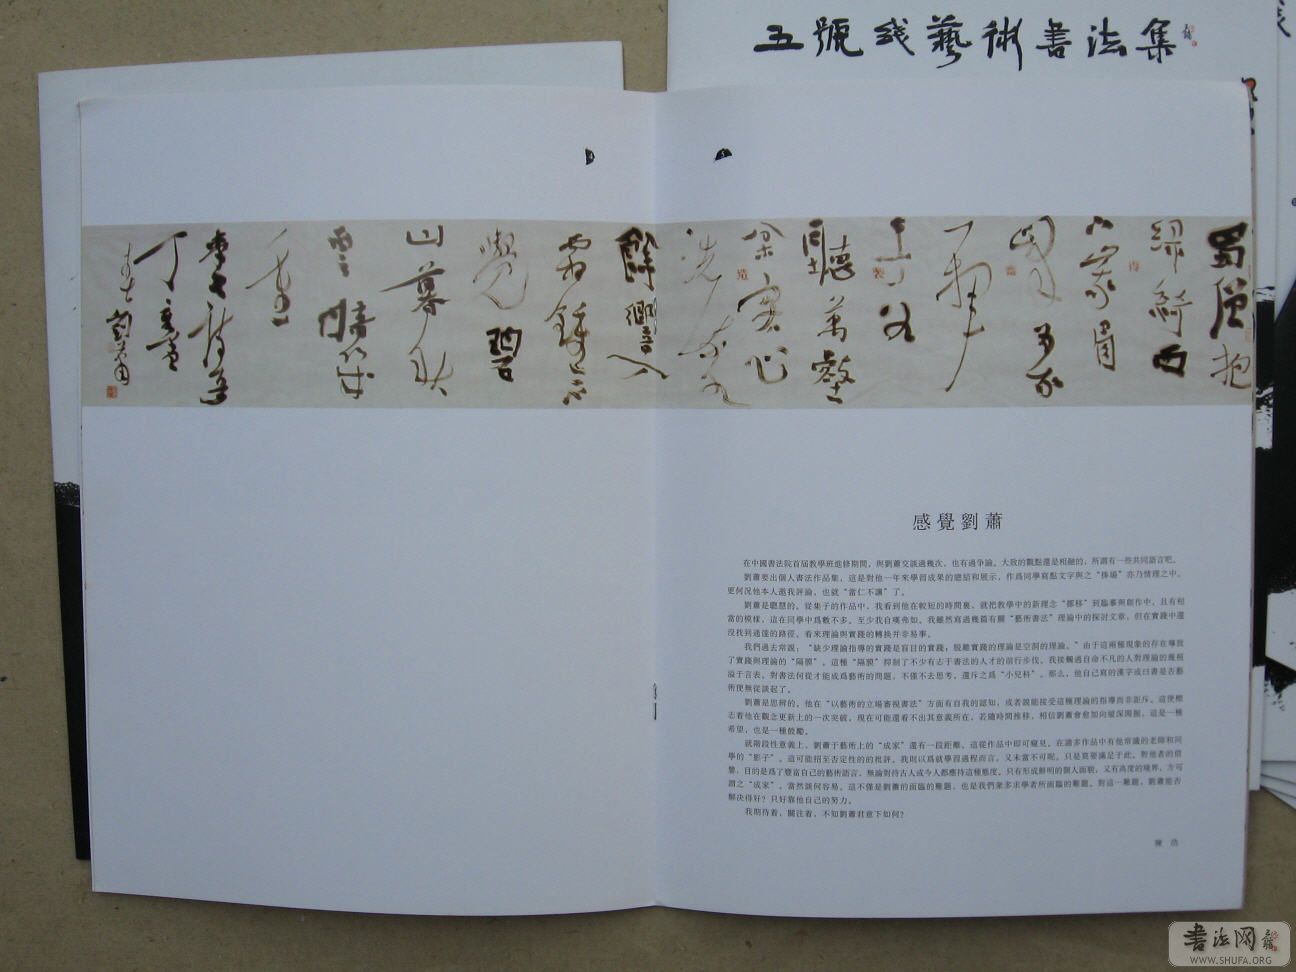 五號綫藝術書法集
蜀僧抱
綠綺西
下峨眉
峰爲我
一揮手
如
聽萬壑
松客心
洗流水
餘響入
霜鐘不
覺碧
山暮秋
雲暗幾
重
李白詩
丁亥
劉蕭
感覺劉蕭
在中國書法院首屆教學班進修期間，與劉蕭交談過幾次，也有過爭論。大致的觀點還是相融的，所謂有一些共同語言吧。
劉蕭要出個人書法作品集，這是對他一年來學習成果的總結和展示，作爲同學寫點文字與之“捧場”亦乃情理之中。
更何況他本人邀我評論，也就“當仁不讓”了。
劉蕭是聰慧的。從集子的作品中，我看到他在較短的時間裏，就把教學中的新理念“挪移”到臨摹與創作中，且有相
當的模樣，這在同學中爲數不多。至少我自嘆弗如。我雖然寫過幾篇有關“藝術書法”理論中的探討文章，但在實踐中還
沒找到通達的路徑。看來理論與實踐的轉換并非易事。
我們過去常說：“缺少理論指導的實踐是盲目的實踐；脫離實踐的理論是空洞的理論。”由于這兩種現象的存在導致
了實踐與理論的“隔膜”。這種“隔膜”抑制了不少有志于書法的人才的前行步伐。我接觸過自命不凡的人對理論的蔑視
溢于言表。對書法何從才能成爲藝術的問題，不僅不去思考，還斥之爲“小兒科”。那么，他自己寫的漢字或曰書是否藝
術便無從談起了。
劉蕭是思辨的。他在“以藝術的立場審視書法”方面有自我的認知，或者說能接受這種理論的指導而非距斥。這便標
志着他在觀念更新上的一次突破。現在可能還看不出其意義所在，若隨時間推移，相信劉蕭會愈加向縱深開掘，這是一種
希望，也是一種鼓勵。
就階段性意義上，劉蕭于藝術上的“成家”還有一段距離。這從作品中即可窺見。在諸多作品中有他常議的老師和同
學的“影子”。這可能招至否定性的的批評。我則以爲就學習過程而言，又未嘗不可呢。只是莫要滿足于此。對他者的借
鑒，目的是爲了豐富自己的藝術語言，無論對待古人或今人都應持這種態度。只有形成鮮明的個人面貌，又有高度的境界，方可
謂之“成家”。當然談何容易。這不僅是劉蕭的面臨的難題，也是我們衆多求學者所面臨的難題。對這一難題，劉蕭能否
解决得好？只好靠他自己的努力。
我期待着，關注着，不知劉蕭君意下如何？
陳浩
書法网
WWW.SHUFA.ORG